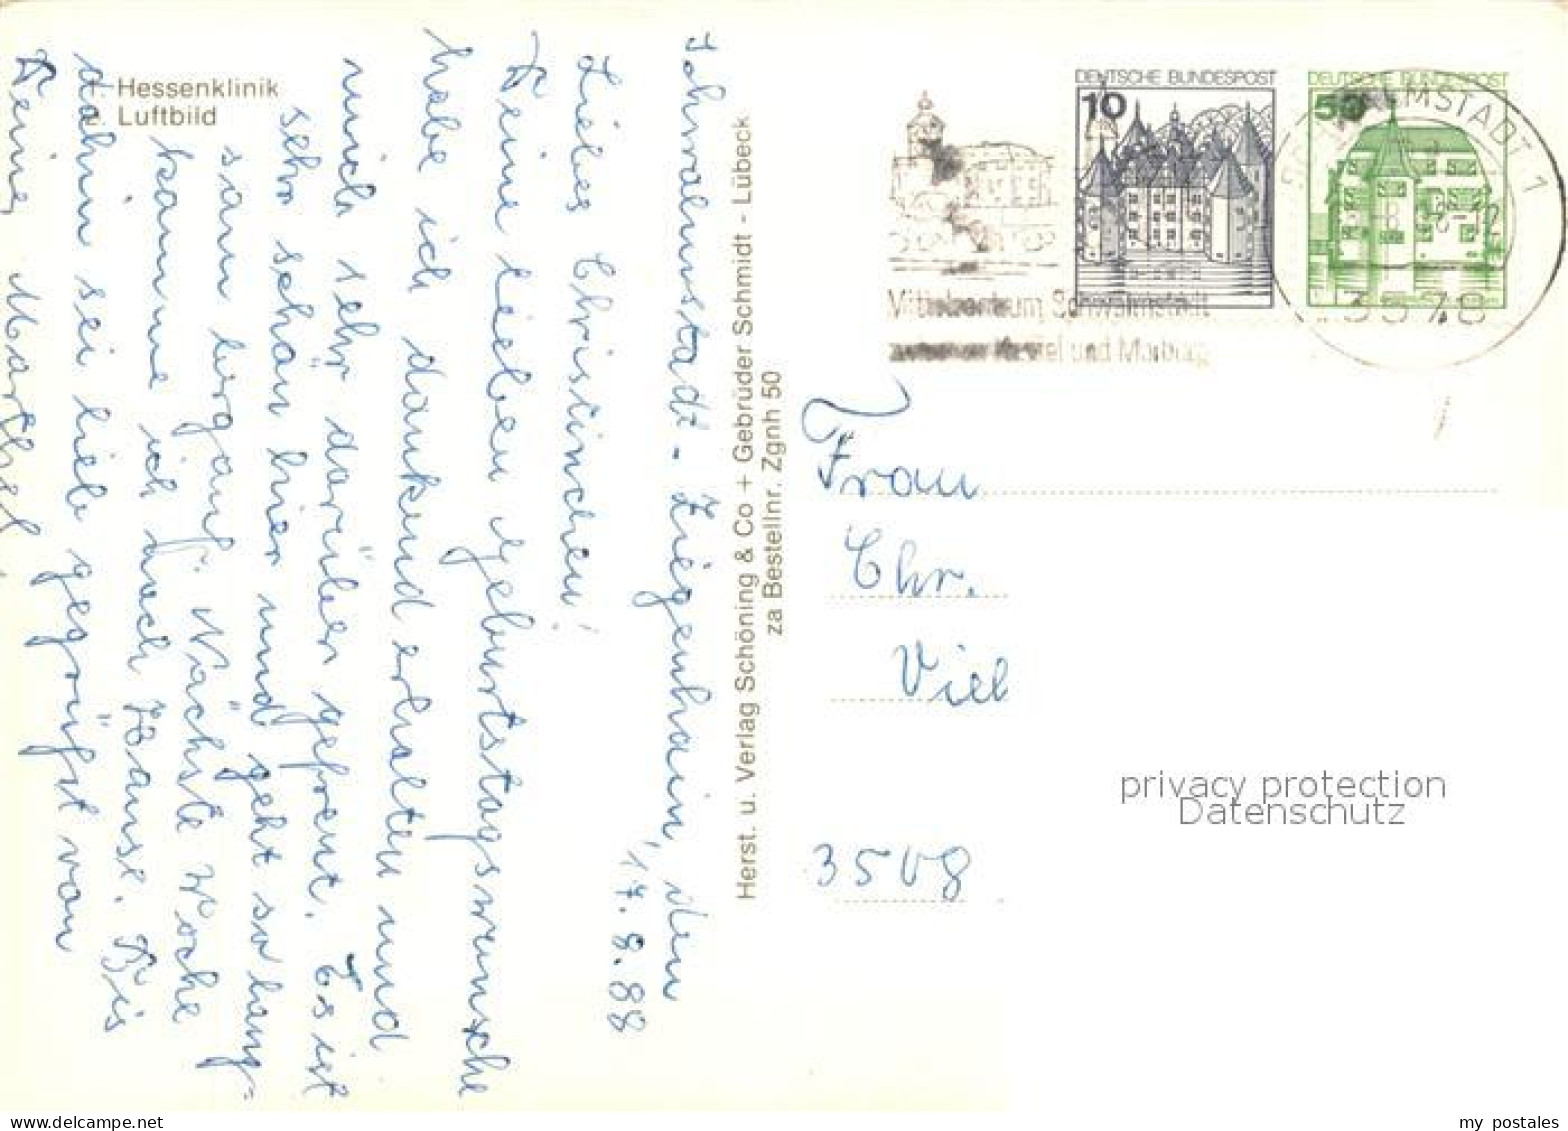 1. Hessenklinik
2. Luftbild
Schwalmstadt-Ziegenhain, den
17.8.88
Liebes Christinchen!
Deine lieben Geburtstagswünsche
habe ich dankend erhalten und
mich sehr darüber gefreut. Es ist
sehr schön hier und geht so lang-
sam bergauf. Nächste Woche
komme ich nach Hause. Bis
dahin sei lieb gegrüßt von
Deine
Herst. u. Verlag Schöning & Co + Gebrüder Schmidt - Lübeck
za Bestellnr. Zgnh 50
DEUTSCHE BUNDESPOST
10
DEUTSCHE BUNDESPOST
50
SCHWALMSTADT 1
3578
Mittelzentrum Schwalmstadt
zwischen Kassel und Marburg
Frau
Chr.
Viel
3508
privacy protection
Datenschutz
delcampe.net
my_postales